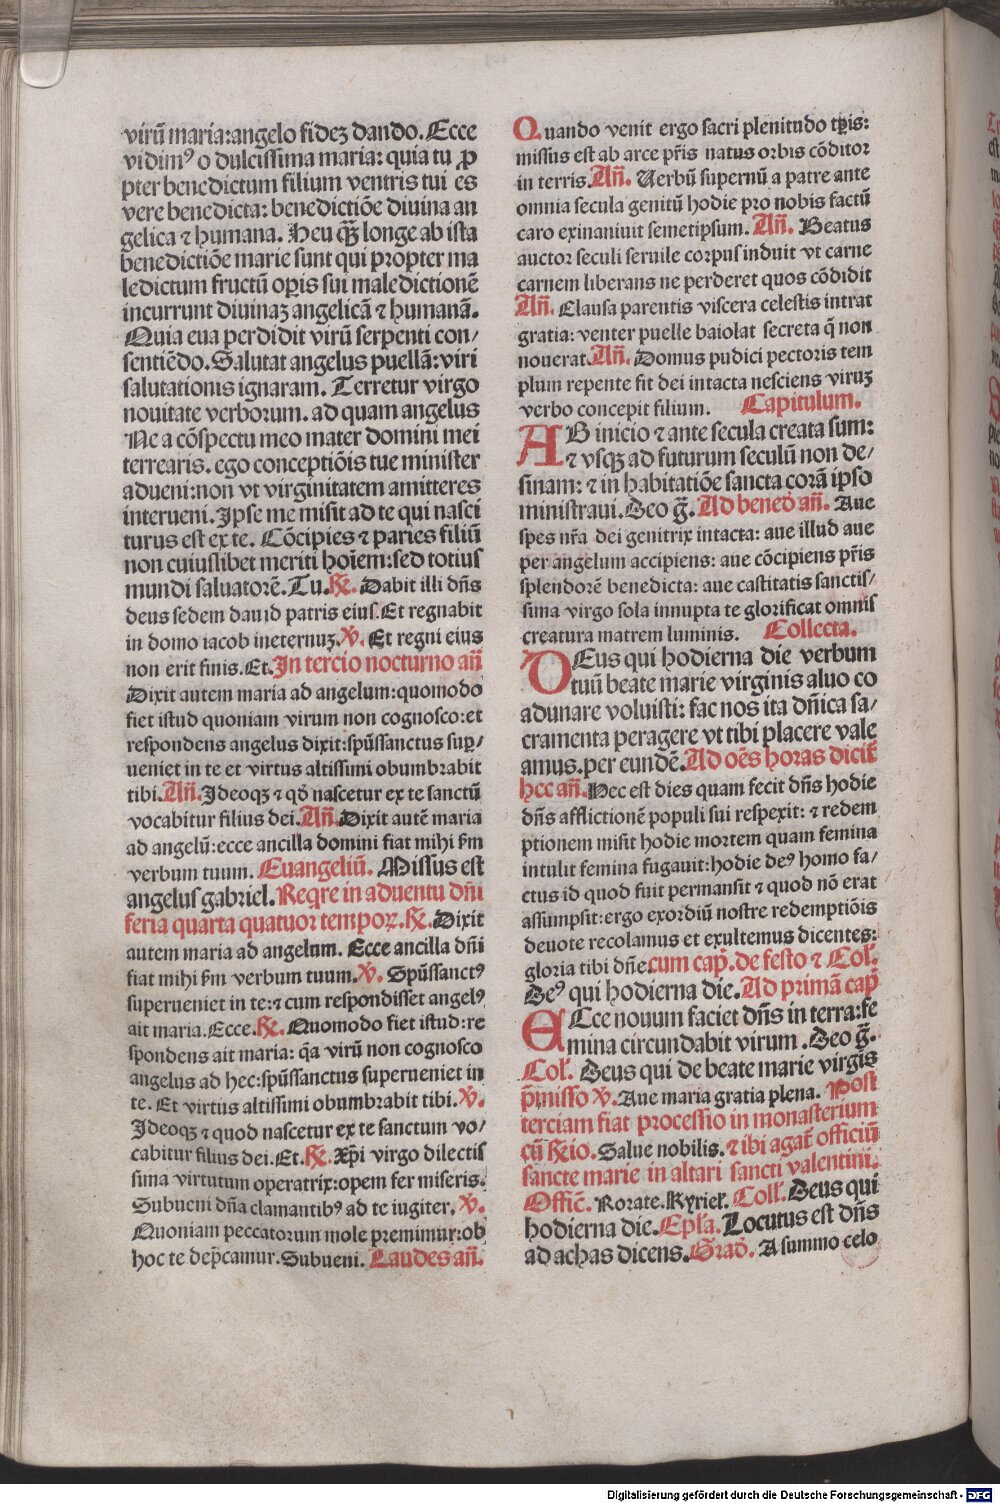 virū maria:angelo fideꝫ dando. Ecce
vidimꝰ o dulcissima maria: quia tu ꝓ
pter benedictum filium ventris tui es
vere benedicta: benedictiōe diuina an
gelica ⁊ humana. Heu qꝫ̄ longe ab ista
benedictiōe marie sunt qui propter ma
ledictum fructū oꝑis sui maledictionē
incurrunt diuinaꝫ angelicā ⁊ humanā.
Quia eua perdidit virū serpenti con/
sentiēdo. Salutat angelus puellā: viri
salutationis ignaram. Terretur virgo
nouitate verborum. ad quam angelus
Ne a cōspectu meo mater domini mei
terrearis. ego conceptiōis tue minister
adueni:non vt virginitatem amitteres
interueni. Ipse me misit ad te qui nasci
turus est ex te. Cōcipies ⁊ paries filiū
non cuiuslibet meriti hoīem:sed totius
mundi saluatorē. Tu. ℟. Dabit illi dn̄s
deus sedem dauid patris eius. Et regnabit
in domo iacob ineternuꝫ. ℣. Et regni eius
non erit finis. Et. In tercio nocturno an̄
Dixit autem maria ad angelum:quomodo
fiet istud quoniam virum non cognosco:et
respondens angelus dixit:spūssanctus suꝑ/
ueniet in te et virtus altissimi obumbrabit
tibi. An̄. Ideoqꝫ ⁊ qd̓ nascetur ex te sanctū
vocabitur filius dei. An̄. Dixit autē maria
ad angelū:ecce ancilla domini fiat mihi ẜm
verbum tuum. Euangeliū. Missus est
angelus gabriel. Reqre in aduentu dn̄i
feria quarta quatuor tempoꝝ. ℟. Dixit
autem maria ad angelum. Ecce ancilla dn̄i
fiat mihi ẜm verbum tuum. ℣. Spūssanctꝰ
superueniet in te:⁊ cum respondisset angelꝰ
ait maria. Ecce. ℟. Quomodo fiet istud:re
spondens ait maria: qa virū non cognosco
angelus ad hec:spūssanctus superueniet in
te. Et virtus altissimi obumbrabit tibi. ℣.
Ideoqꝫ ⁊ quod nascetur ex te sanctum vo/
cabitur filius dei. Et. ℟. Xp̄i virgo dilectis
sima virtutum operatrix:opem fer miseris.
Subueni dn̄a clamantibꝰ ad te iugiter. ℣.
Quoniam peccatorum mole premimur:ob
hoc te dep̄camur. Subueni. Laudes an̄.
Quando venit ergo sacri plenitudo tp̄is:
missus est ab arce pr̄is natus orbis cōditor
in terris. An̄. Verbū supernū a patre ante
omnia secula genitū hodie pro nobis factū
caro exinaniuit semetipsum. An̄. Beatus
auctor seculi seruile corpus induit vt carne
carnem liberans ne perderet quos cōdidit
An̄. Clausa parentis viscera celestis intrat
gratia: venter puelle baiolat secreta q̄ non
nouerat. An̄. Domus pudici pectoris tem
plum repente fit dei intacta nesciens viruꝫ
verbo concepit filium. Capitulum.
AB inicio ⁊ ante secula creata sum:
⁊ vsqꝫ ad futurum seculū non de/
sinam: ⁊ in habitatiōe sancta corā ipso
ministraui. Deo ḡ. Ad bened̓ an̄. Aue
spes nr̄a dei genitrix intacta: aue illud aue
per angelum accipiens: aue cōcipiens pr̄is
splendorē benedicta: aue castitatis sanctis/
sima virgo sola innupta te glorificat omnis
creatura matrem luminis. Collecta.
DEus qui hodierna die verbum
tuū beate marie virginis aluo co
adunare voluisti: fac nos ita dn̄ica sa/
cramenta peragere vt tibi placere vale
amus. per eundē. Ad oēs horas dicit̄
hec an̄. Hec est dies quam fecit dn̄s hodie
dn̄s afflictionē populi sui respexit: ⁊ redem
ptionem misit hodie mortem quam femina
intulit femina fugauit:hodie deꝰ homo fa/
ctus id quod fuit permansit ⁊ quod nō erat
assumpsit:ergo exordiū nostre redemptiōis
deuote recolamus et exultemus dicentes:
gloria tibi dn̄e. cum cap̄. de festo ⁊ Coll̓.
Deꝰ qui hodierna die. Ad primā cap̄
ECce nouum faciet dn̄s in terra:fe
mina circundabit virum. Deo ḡ.
Coll̓. Deus qui de beate marie virgīs
p̄misso ℣. Aue maria gratia plena. Post
terciam fiat processio in monasterium
cū ℟io. Salue nobilis. ⁊ ibi agat̄ officiū
sancte marie in altari sancti valentini.
Offic̄. Rorate. Kyriel̓. Coll̓. Deus qui
hodierna die. Epl̓a. Locutus est dn̄s
ad achas dicens. Grad̓. A summo celo
Digitalisierung gefördert durch die Deutsche Forschungsgemeinschaft - DFG